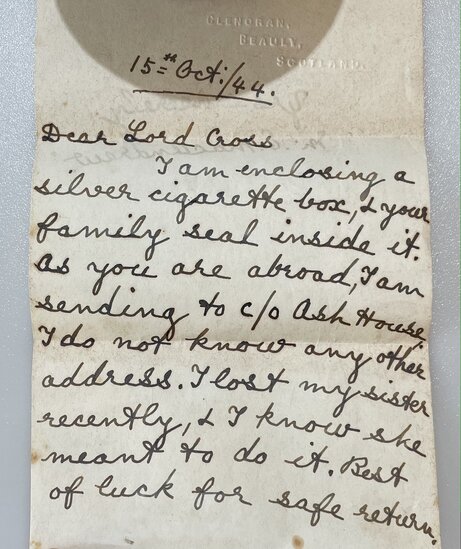 GLENORAN,
BEAULY,
SCOTLAND.
15th Oct:/44.
Dear Lord Cross
I am enclosing a
silver cigarette box, & your
family seal inside it.
As you are abroad, I am
sending to c/o Ash House,
I do not know any other
address. I lost my sister
recently, & I know she
meant to do it. Best
of luck for safe return.